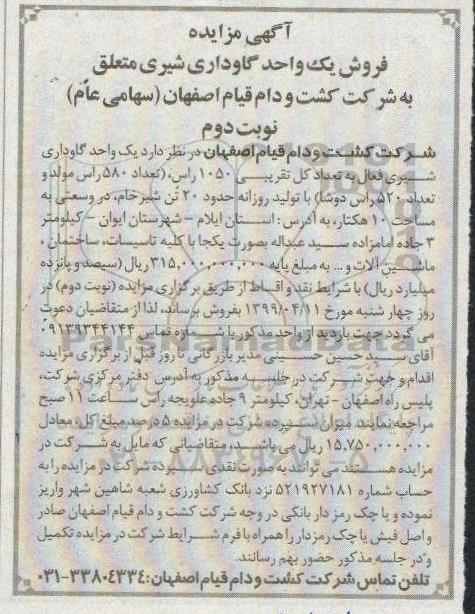 آگهی مزایده
فروش یک واحد گاوداری شیری متعلق
به شرکت کشت و دام قیام اصفهان (سهامی عام)
نوبت دوم
شرکت کشت و دام قیام اصفهان در نظر دارد یک واحد گاوداری
شیری فعال به تعداد کل تقریبی ۱۰۵۰ راس، (تعداد ۵۸۰ راس مولد و
تعداد ۵۲۰ راس دوشا) با تولید روزانه حدود ۲۰ تُن شیر خام، در وسعتی به
مساحت ۱۰ هکتار، به آدرس: استان ایلام - شهرستان ایوان - کیلومتر
۳ جاده امامزاده سید عبداله بصورت یکجا با کلیه تاسیسات، ساختمان،
ماشین آلات و... به مبلغ پایه ۳۱۵,۰۰۰,۰۰۰,۰۰۰ ریال (سیصد و پانزده
میلیارد ریال) با شرایط نقد و اقساط از طریق برگزاری مزایده (نوبت دوم) در
روز چهار شنبه مورخ ۱۳۹۹/۰۴/۱۱ بفروش برساند، لذا از متقاضیان دعوت
می گردد جهت بازدید از واحد مذکور با شماره تماس ۰۹۱۳۹۳۴۴۱۴۴
آقای سید حسین حسینی مدیر بازرگانی تا روز قبل از برگزاری مزایده
اقدام و جهت شرکت در جلسه مذکور به آدرس دفتر مرکزی شرکت،
پلیس راه اصفهان - تهران، کیلومتر ۹ جاده علویجه راس ساعت ۱۱ صبح
مراجعه نمایند. میزان سپرده شرکت در مزایده ۵ درصد مبلغ کل، معادل
۱۵,۷۵۰,۰۰۰,۰۰۰ ریال می باشد، متقاضیانی که مایل به شرکت در
مزایده هستند می توانند به صورت نقدی سپرده شرکت در مزایده را به
حساب شماره ۵۲۱۹۲۷۱۸۱ نزد بانک کشاورزی شعبه شاهین شهر واریز
نموده و یا چک رمز دار بانکی در وجه شرکت کشت و دام قیام اصفهان صادر
و اصل فیش یا چک رمزدار را همراه با فرم شرایط شرکت در مزایده تکمیل
و در جلسه مذکور حضور بهم رسانند.
تلفن تماس شرکت کشت و دام قیام اصفهان: ۳۳۸۰۴۳۳۴-۰۳۱
ParsNamadData